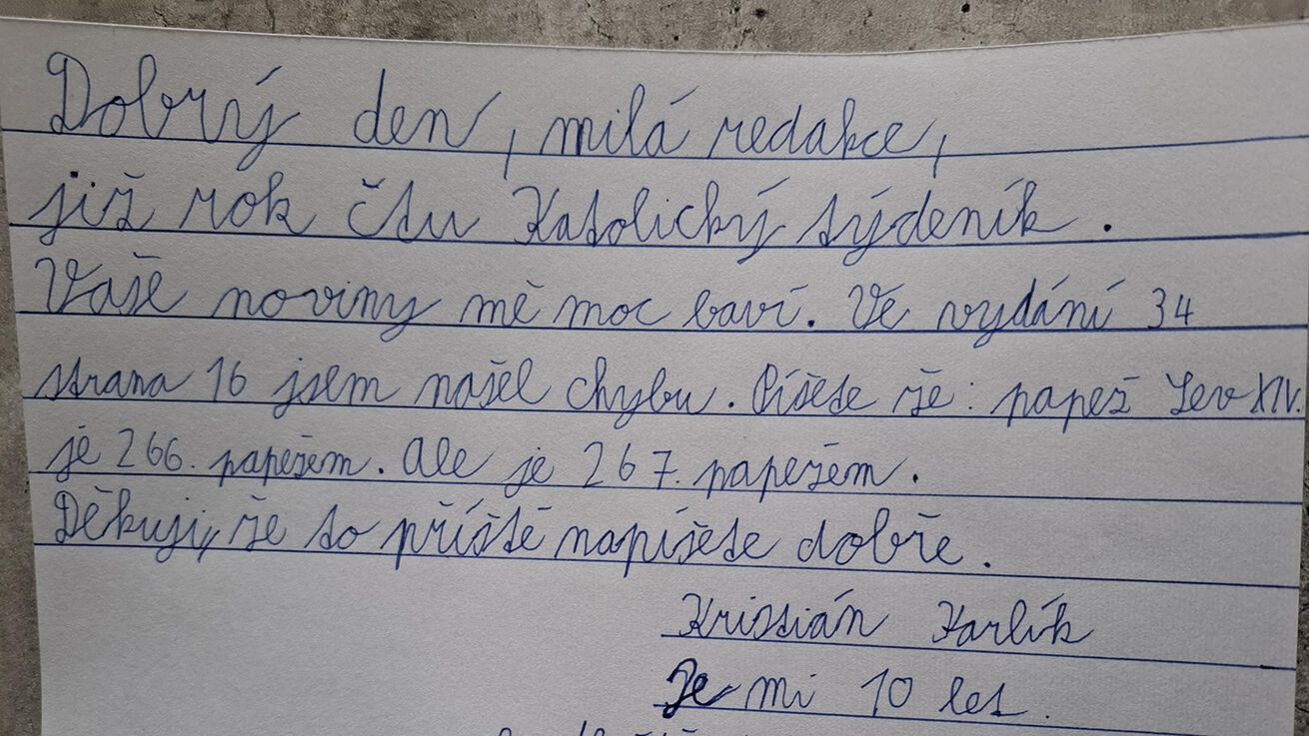 Dobrý den, milá redakce,
již rok čtu Katolický týdeník.
Vaše noviny mě moc baví. Ve vydání 34
strana 16 jsem našel chybu. Píšete že: papež Lev XIV.
je 266. papežem. Ale je 267. papežem.
Děkuji, že to příště napíšete dobře.
Kristián Karlík
Je mi 10 let.